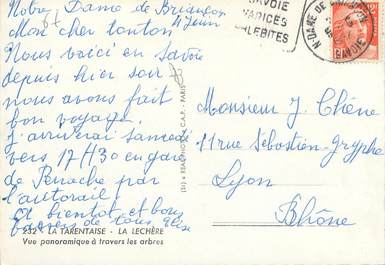 Notre Dame de Briançon
4 Juin
Mon cher tonton
Nous voici en Savoie
depuis hier soir
nous avons fait
bon voyage.
J'arriverai samedi
vers 17H30 en gare
de Perrache par
l'autorail
Et bientôt et bons
baisers de tous
232 - LA TARENTAISE - LA LÉCHÈRE
Vue panoramique à travers les arbres
C.A.P. - PARIS
SAVOIE
VARICES
PHLEBITES
N-DAME DE
SAVOIE
Monsieur J. Chêne
11 rue Sébastien-Gryphe
Lyon
Rhône